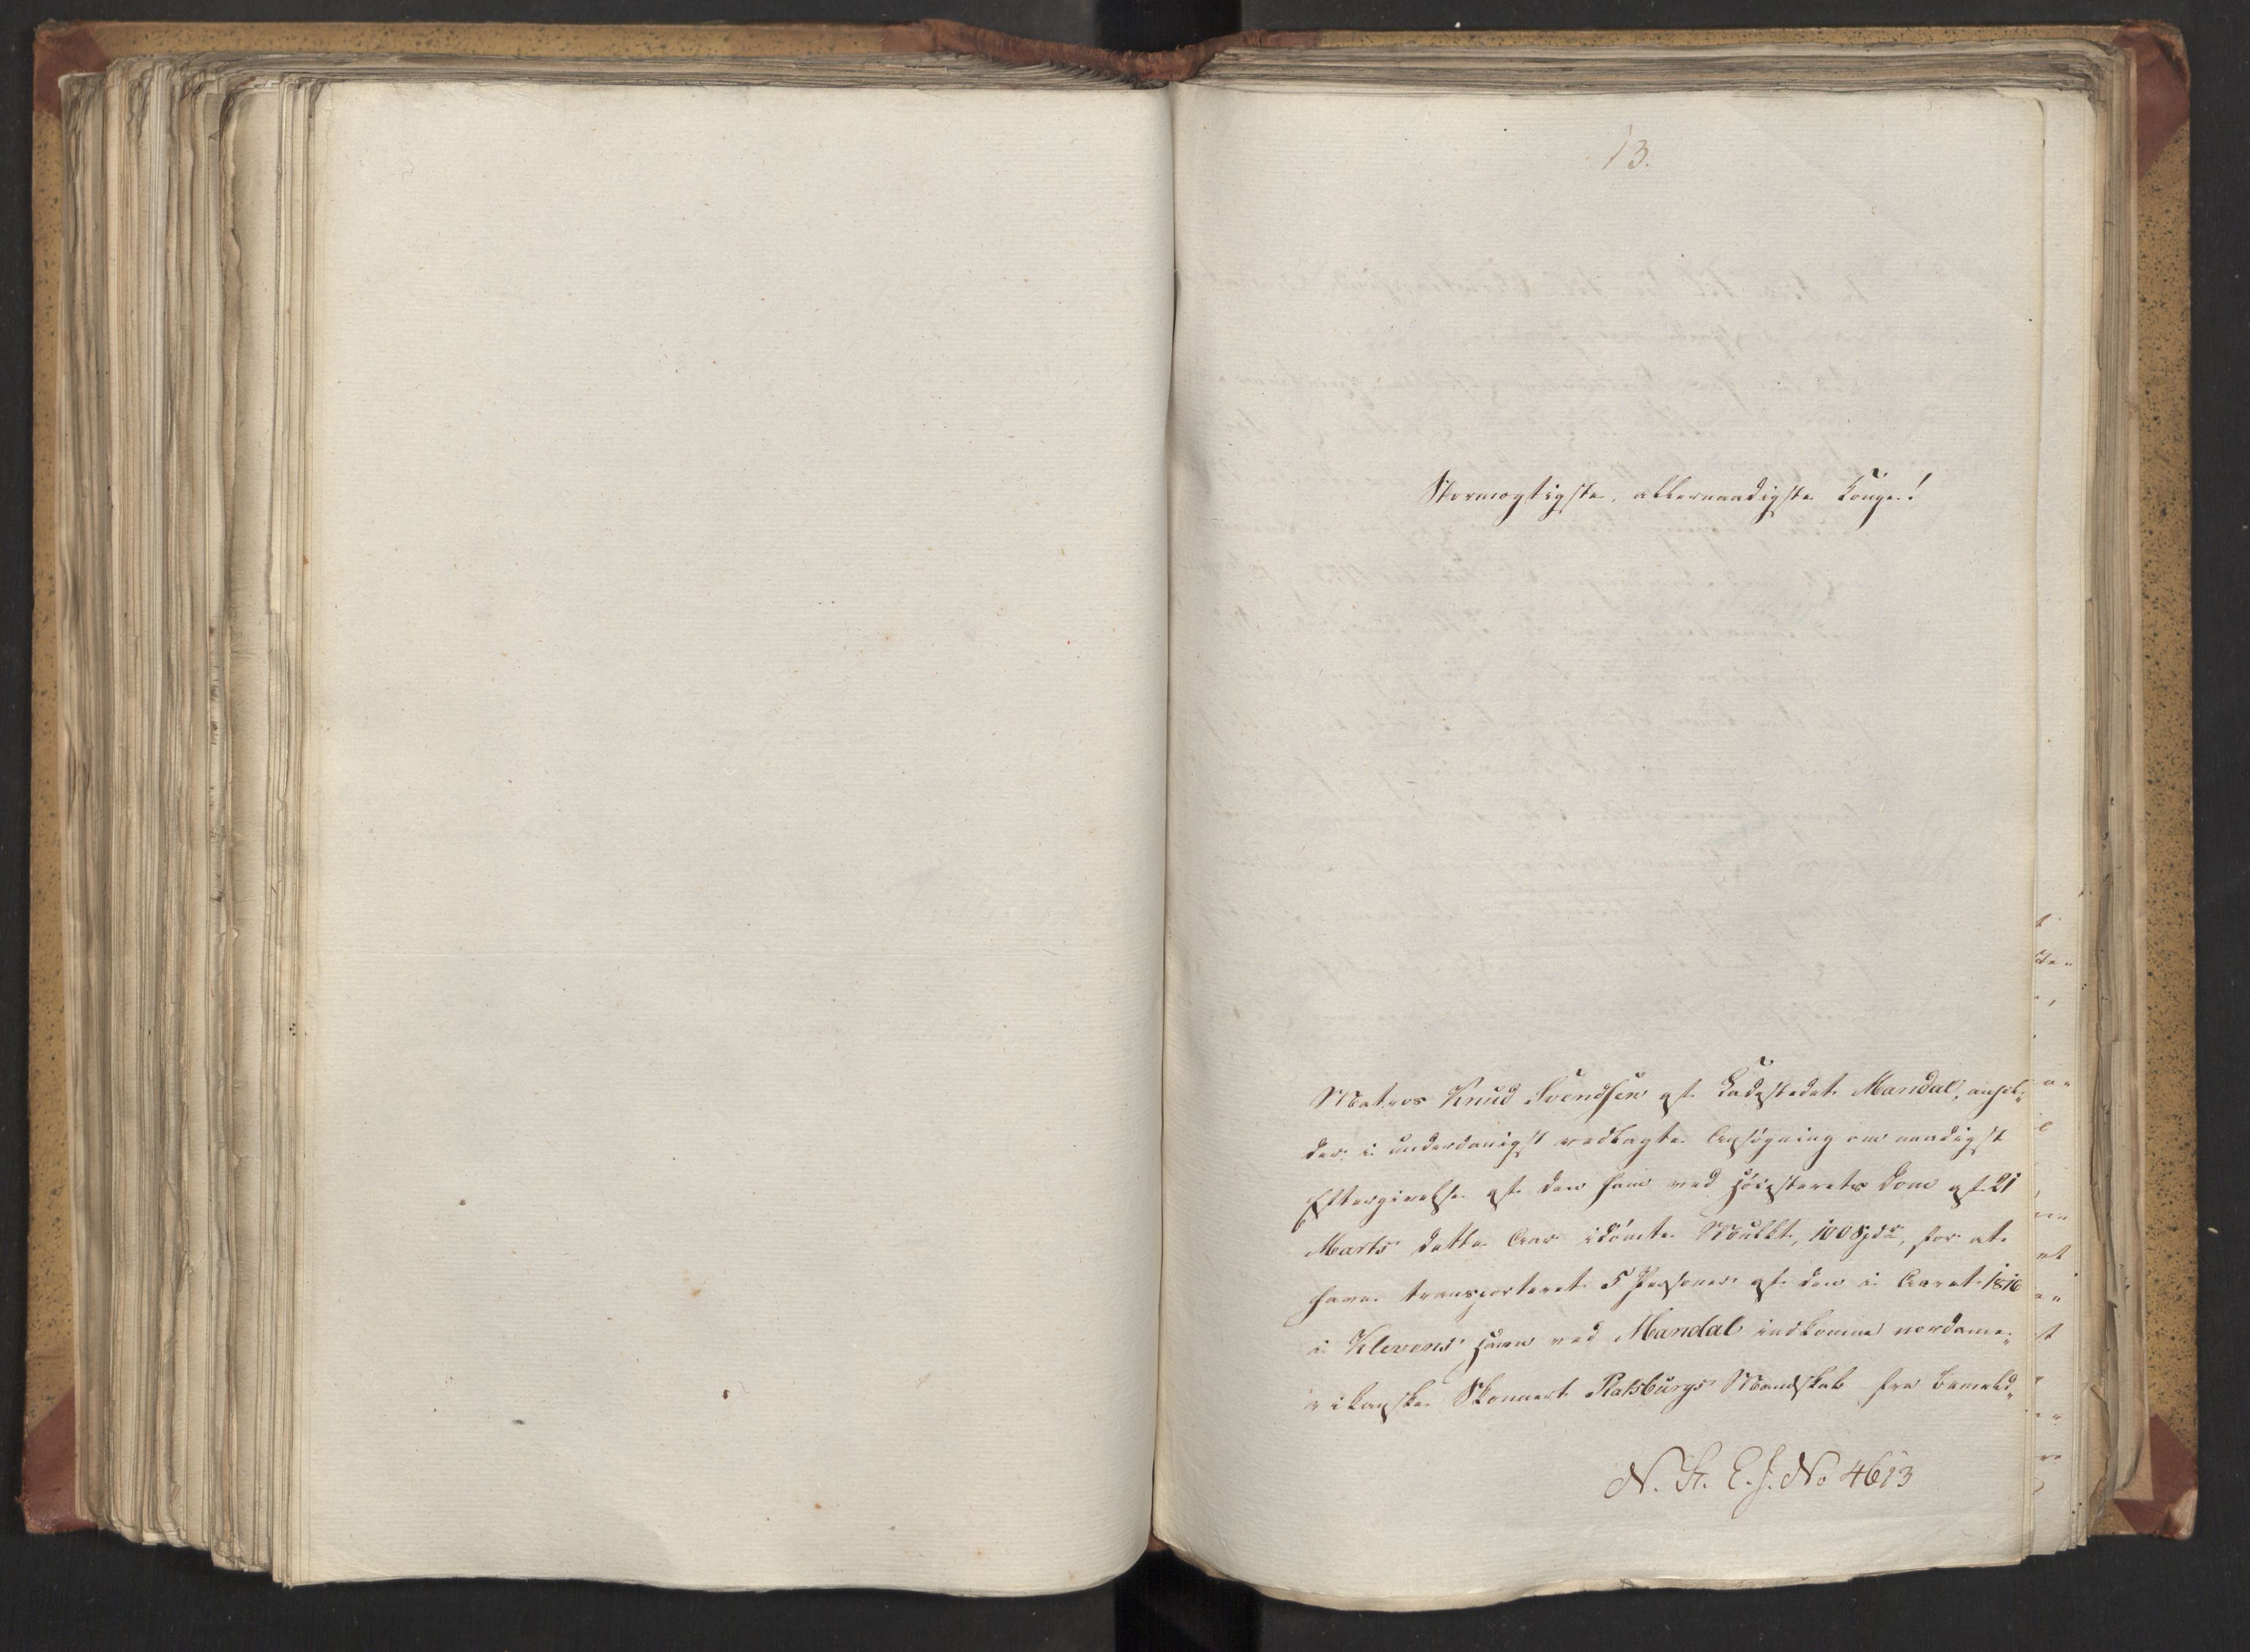 13.
Stormægtigste, allernaadigste Konge!
Matros Knud Svendsen af Ladestedet Mandal, anhol„
der i underdanigst vedlagte Ansøgning om naadigst
Eftergivelse af den ham ved Høiesterets Dom af 21
Marts dette Aar idømte Mulkt, 100 Spdr, for at
have transporteret 5 Personer af den i Aaret 1816
i Klevens Havn ved Mandal indkomne nordame„
rikanske Skonnert Ratsburgs Mandskab fra bemeld„
N. St. E. J. No 4613